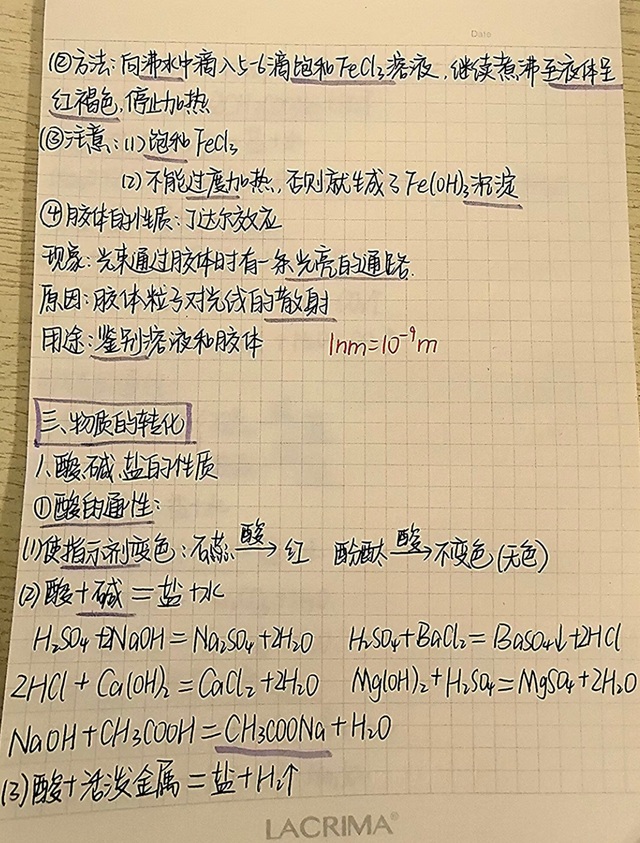 Date
②方法:向沸水中滴入5-6滴饱和FeCl₃溶液,继续煮沸至液体呈
红褐色,停止加热
③注意:(1)饱和FeCl₃
(2)不能过度加热,否则就生成了Fe(OH)₃沉淀
④胶体的性质:丁达尔效应
现象:光束通过胶体时有一条光亮的通路.
原因:胶体粒子对光线的散射
用途:鉴别溶液和胶体 1nm=10⁻⁹m
三、物质的转化
1、酸、碱、盐的性质
①酸的通性:
(1)使指示剂变色:石蕊 酸→ 红 酚酞 酸→ 不变色(无色)
(2)酸+碱=盐+水
H₂SO₄+2NaOH=Na₂SO₄+2H₂O H₂SO₄+BaCl₂=BaSO₄↓+2HCl
2HCl+Ca(OH)₂=CaCl₂+2H₂O Mg(OH)₂+H₂SO₄=MgSO₄+2H₂O
NaOH+CH₃COOH=CH₃COONa+H₂O
(3)酸+活泼金属=盐+H₂↑
LACRIMA®